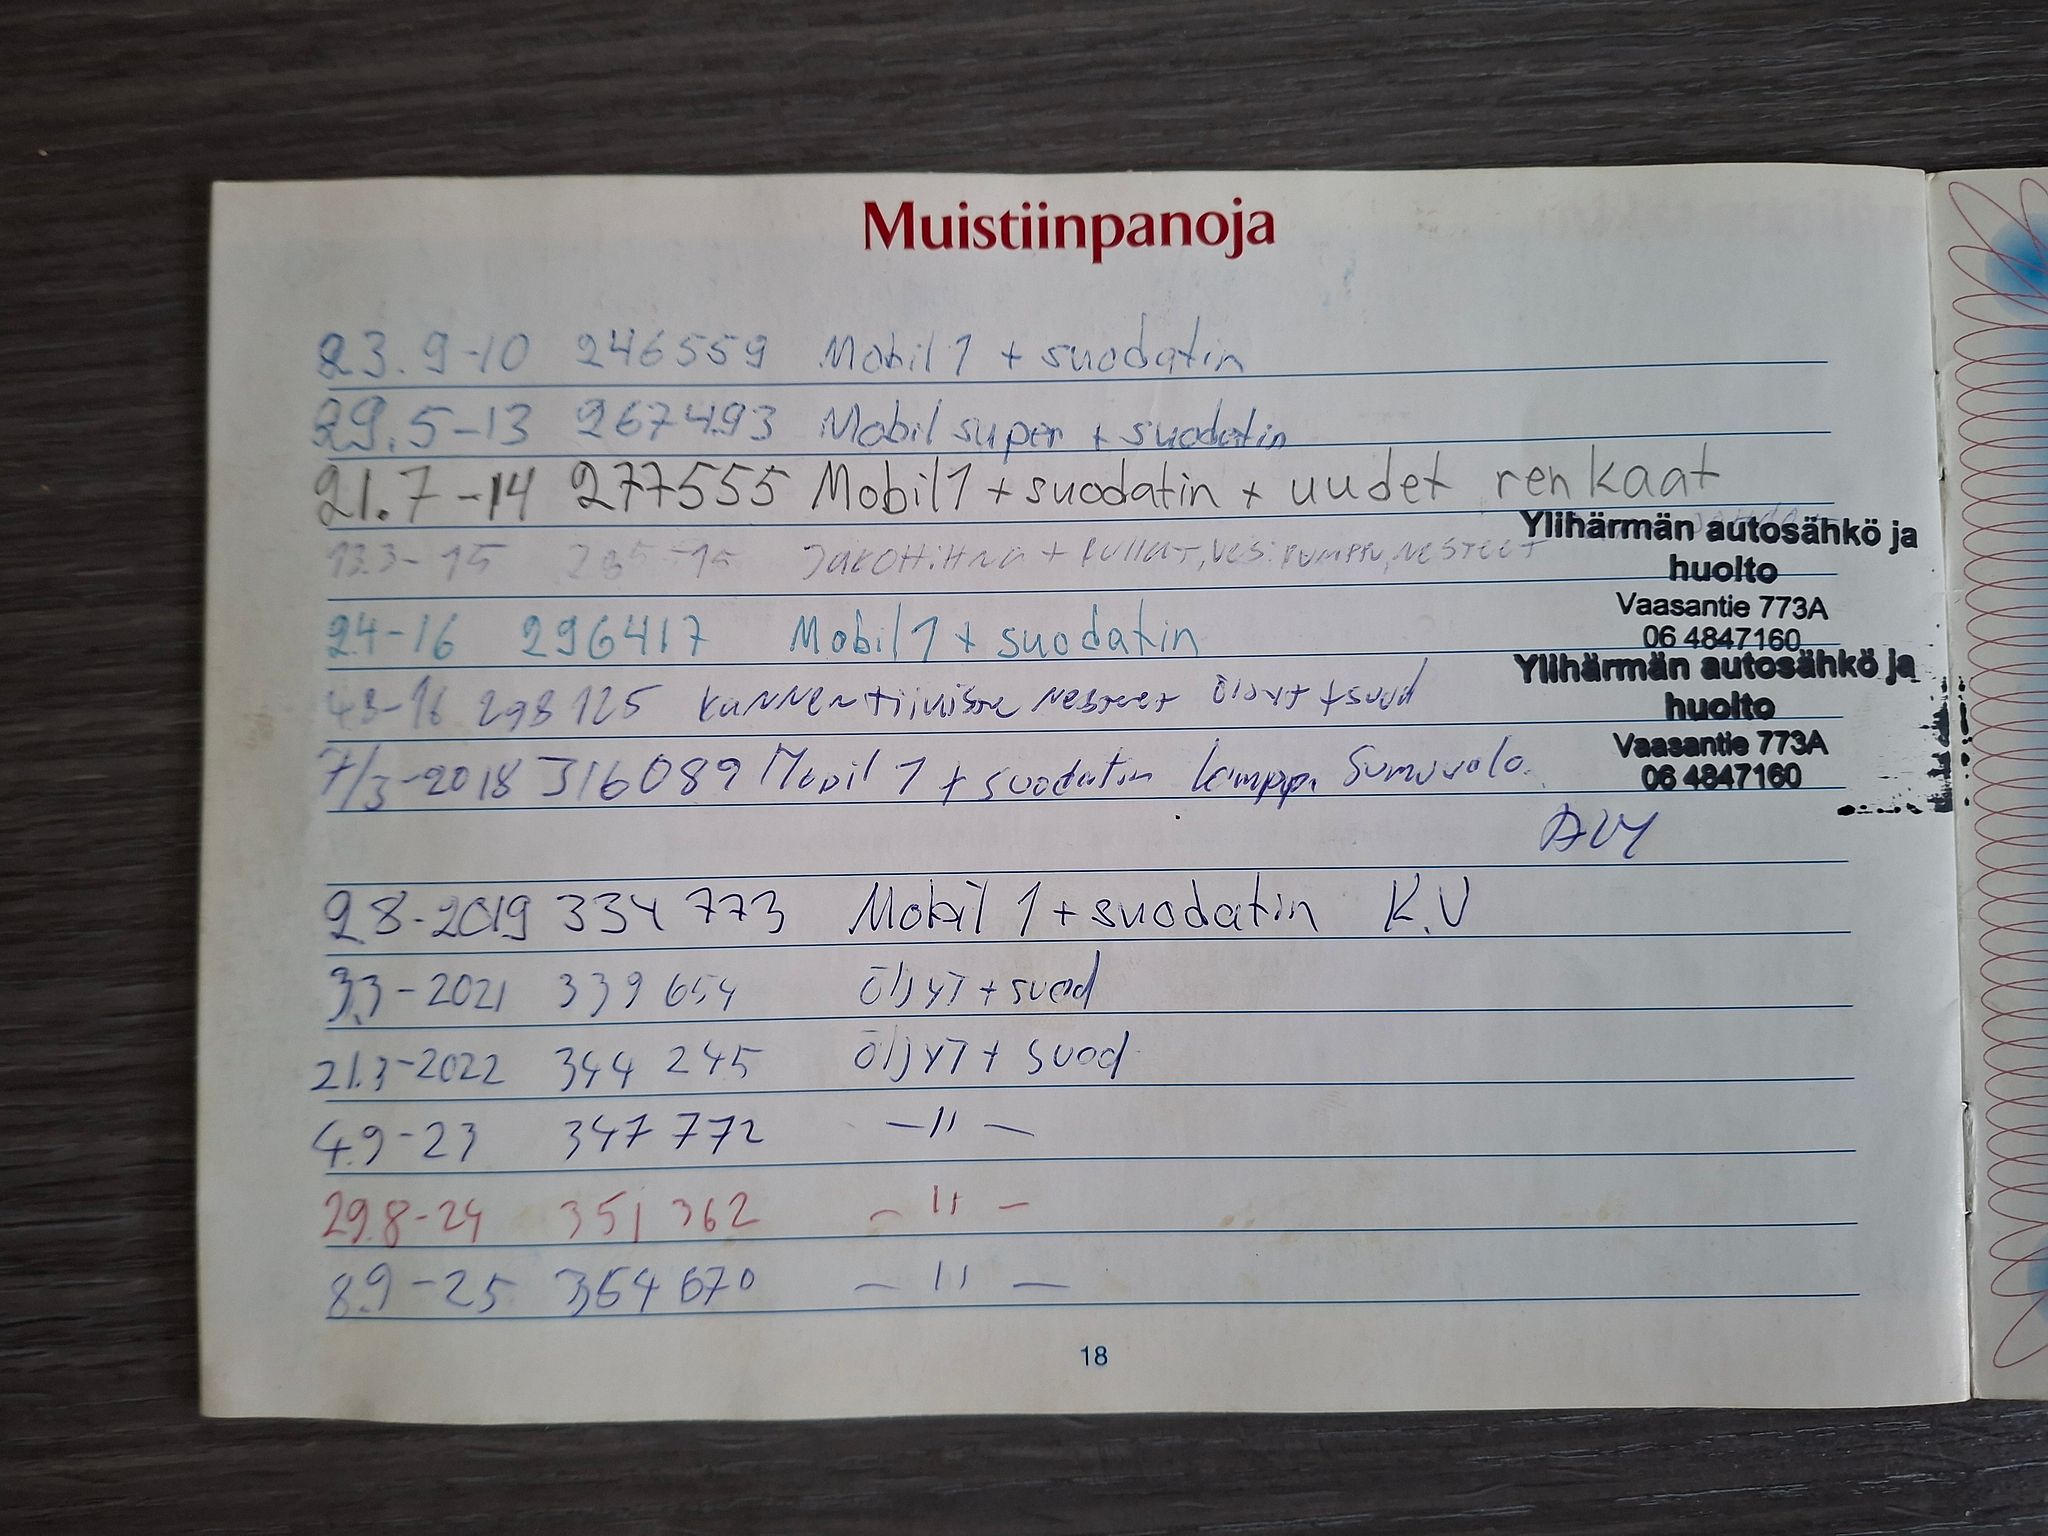 Muistiinpanoja
23.9-10 246559 Mobil 1 + suodatin
29.5-13 267493 Mobil super + suodatin
21.7-14 277555 Mobil 1 + suodatin + uudet renkaat
13.3-15 Jakohihna + rullat, vesipumppu, nesteet
Ylihärmän autosähkö ja
huolto
Vaasantie 773A
06 4847160
24-16 296417 Mobil 1 + suodatin
4.3-16 298125 kannentiiviste nesteet öljyt + suod
Ylihärmän autosähkö ja
huolto
Vaasantie 773A
06 4847160
7/3-2018 316089 Mobil 1 + suodatin lamppi Sumuvalo.
28-2019 334 773 Mobil 1 + suodatin K.V
3.3-2021 339 654 öljyt + suod
21.3-2022 344 245 öljyt + suod
4.9-23 347 772 -11-
29.8-24 351 362 -11-
8.9-25 354 670 -11-
18